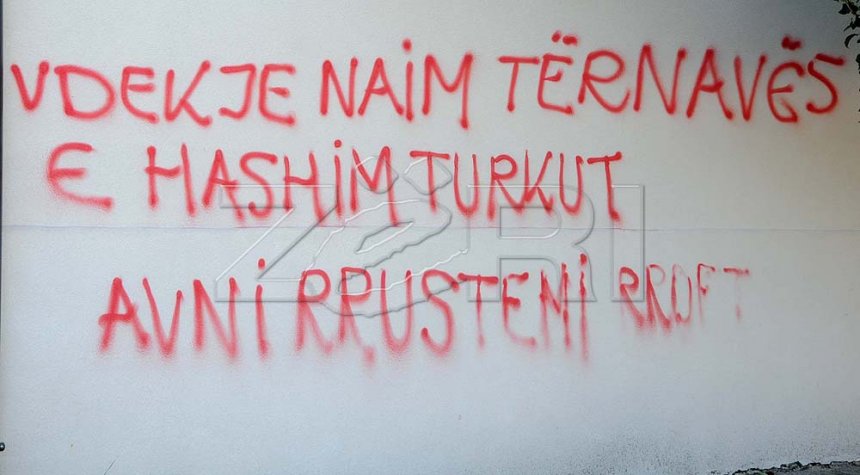 VDEKJE NAİM TËRNAVËS
E HASHİM TURKUT
ZËRI
AVNİ RRUSTEMİ RROFT